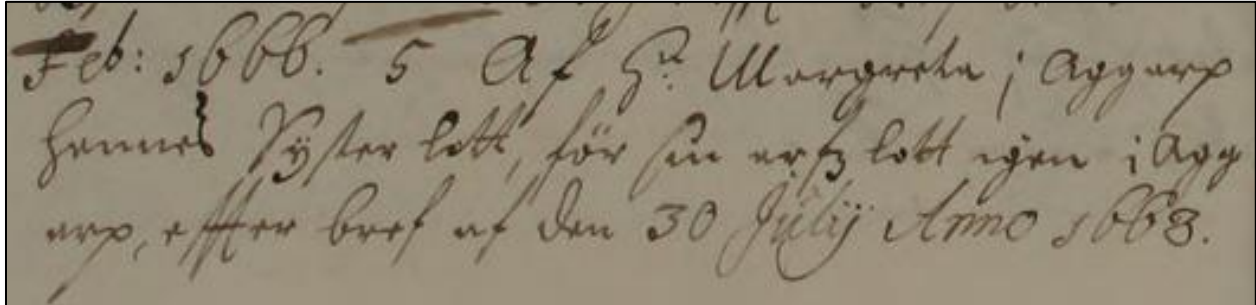 Feb: 1666. 5 Af H:u Margreta i Aggarp
hennes Syster lott, för sin arfz lott igen i Agg
arp, effter bref af den 30 Julij Anno 1668.